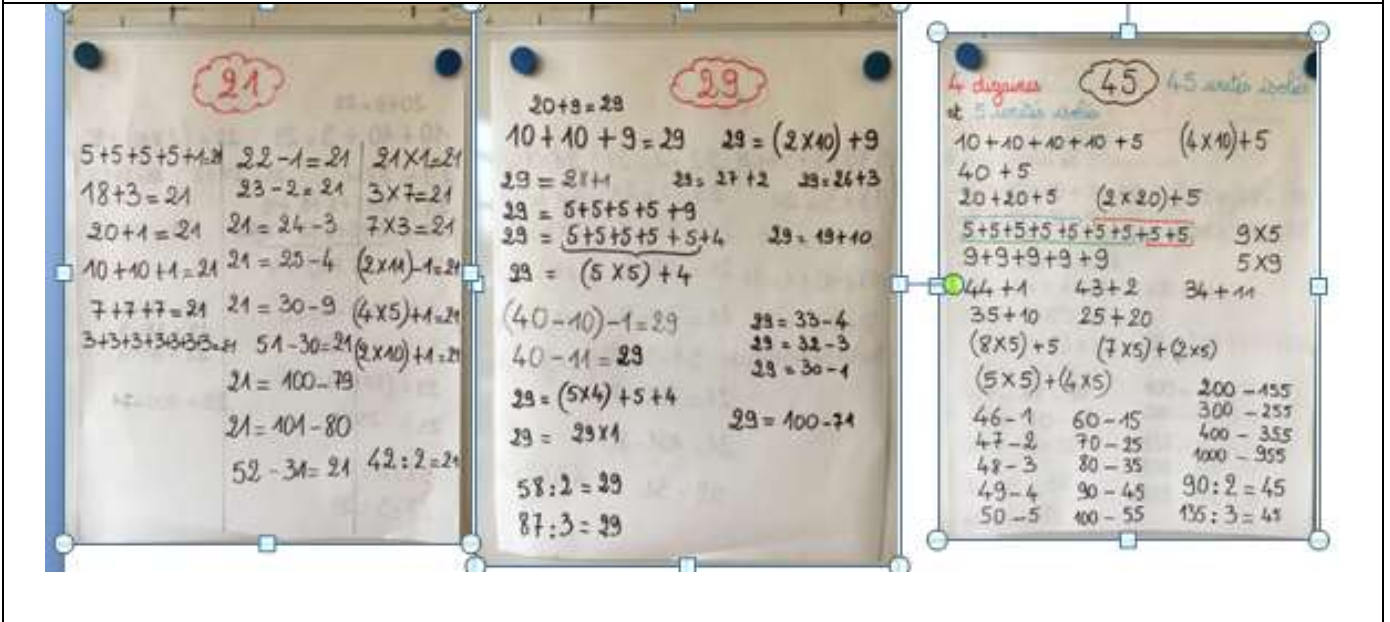 21
5+5+5+5+1=21
18+3=21
20+1=21
10+10+1=21
7+7+7=21
3+3+3+3+3+3+3=21
22-1=21
23-2=21
21=24-3
21=25-4
21=30-9
51-30=21
21=100-79
21=101-80
52-31=21
21×1=21
3×7=21
7×3=21
(2×11)-1=21
(4×5)+1=21
(2×10)+1=21
42:2=21
29
20+9=29
10+10+9=29 29=(2×10)+9
29=28+1 29=27+2 29=26+3
29=5+5+5+5+9
29=5+5+5+5+5+4 29=19+10
29=(5×5)+4
(40-10)-1=29
40-11=29
29=33-4
29=32-3
29=30-1
29=(5×4)+5+4
29=29×1
29=100-71
58:2=29
87:3=29
4 dizaines 45 45 unités isolées
et 5 unités isolées
10+10+10+10+5 (4×10)+5
40+5
20+20+5 (2×20)+5
5+5+5+5+5+5+5+5+5 9×5
9+9+9+9+9 5×9
44+1 43+2 34+11
35+10 25+20
(8×5)+5 (7×5)+(2×5)
(5×5)+(4×5)
46-1
47-2
48-3
49-4
50-5
60-15
70-25
80-35
90-45
100-55
200-155
300-255
400-355
1000-955
90:2=45
135:3=45